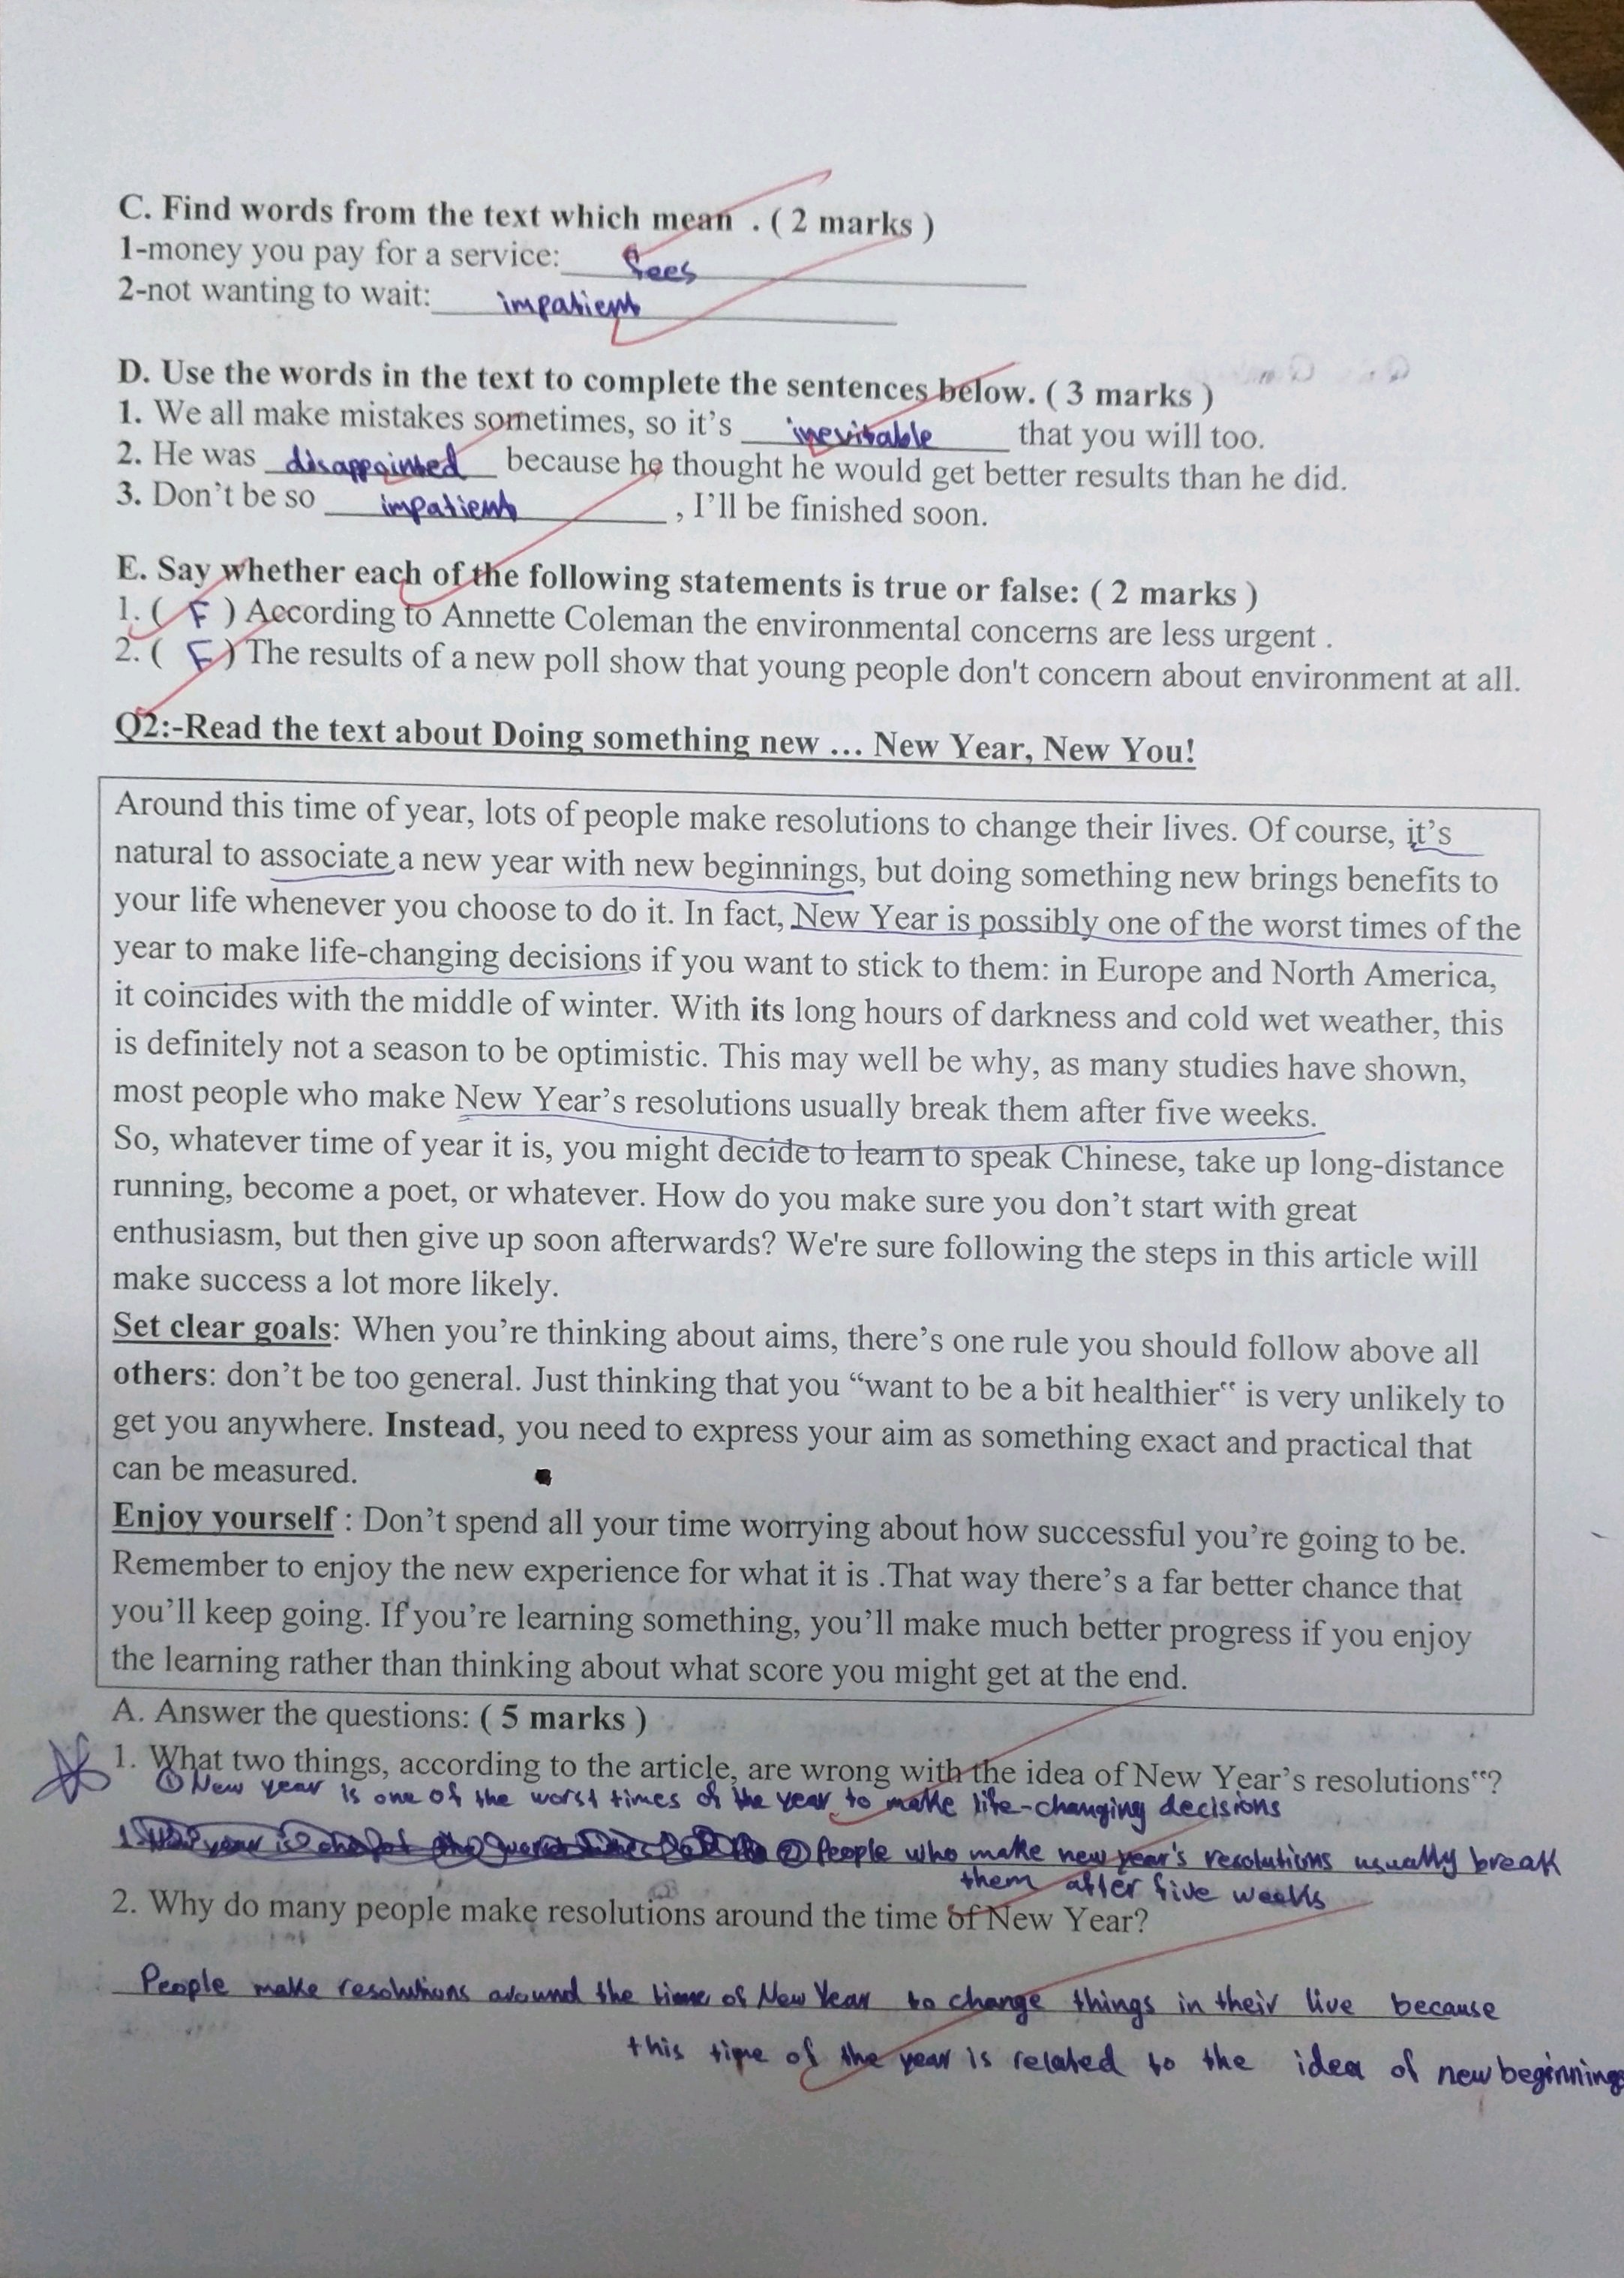 C. Find words from the text which mean . ( 2 marks )
1-money you pay for a service: fees
2-not wanting to wait: impatient
D. Use the words in the text to complete the sentences below. ( 3 marks )
1. We all make mistakes sometimes, so it's inevitable that you will too.
2. He was disappointed because he thought he would get better results than he did.
3. Don't be so impatient , I'll be finished soon.
E. Say whether each of the following statements is true or false: ( 2 marks )
1. ( F ) According to Annette Coleman the environmental concerns are less urgent .
2. ( F ) The results of a new poll show that young people don't concern about environment at all.
Q2:-Read the text about Doing something new ... New Year, New You!
Around this time of year, lots of people make resolutions to change their lives. Of course, it's
natural to associate a new year with new beginnings, but doing something new brings benefits to
your life whenever you choose to do it. In fact, New Year is possibly one of the worst times of the
year to make life-changing decisions if you want to stick to them: in Europe and North America,
it coincides with the middle of winter. With its long hours of darkness and cold wet weather, this
is definitely not a season to be optimistic. This may well be why, as many studies have shown,
most people who make New Year's resolutions usually break them after five weeks.
So, whatever time of year it is, you might decide to learn to speak Chinese, take up long-distance
running, become a poet, or whatever. How do you make sure you don't start with great
enthusiasm, but then give up soon afterwards? We're sure following the steps in this article will
make success a lot more likely.
Set clear goals: When you're thinking about aims, there's one rule you should follow above all
others: don't be too general. Just thinking that you “want to be a bit healthier“ is very unlikely to
get you anywhere. Instead, you need to express your aim as something exact and practical that
can be measured.
Enjoy yourself : Don't spend all your time worrying about how successful you're going to be.
Remember to enjoy the new experience for what it is .That way there's a far better chance that
you'll keep going. If you're learning something, you'll make much better progress if you enjoy
the learning rather than thinking about what score you might get at the end.
A. Answer the questions: ( 5 marks )
1. What two things, according to the article, are wrong with the idea of New Year's resolutions“?
① New year is one of the worst times of the year to make life-changing decisions
② People who make new year's resolutions usually break
them after five weeks
2. Why do many people make resolutions around the time of New Year?
People make resolutions around the time of New Year to change things in their live because
this time of the year is related to the idea of new beginnings